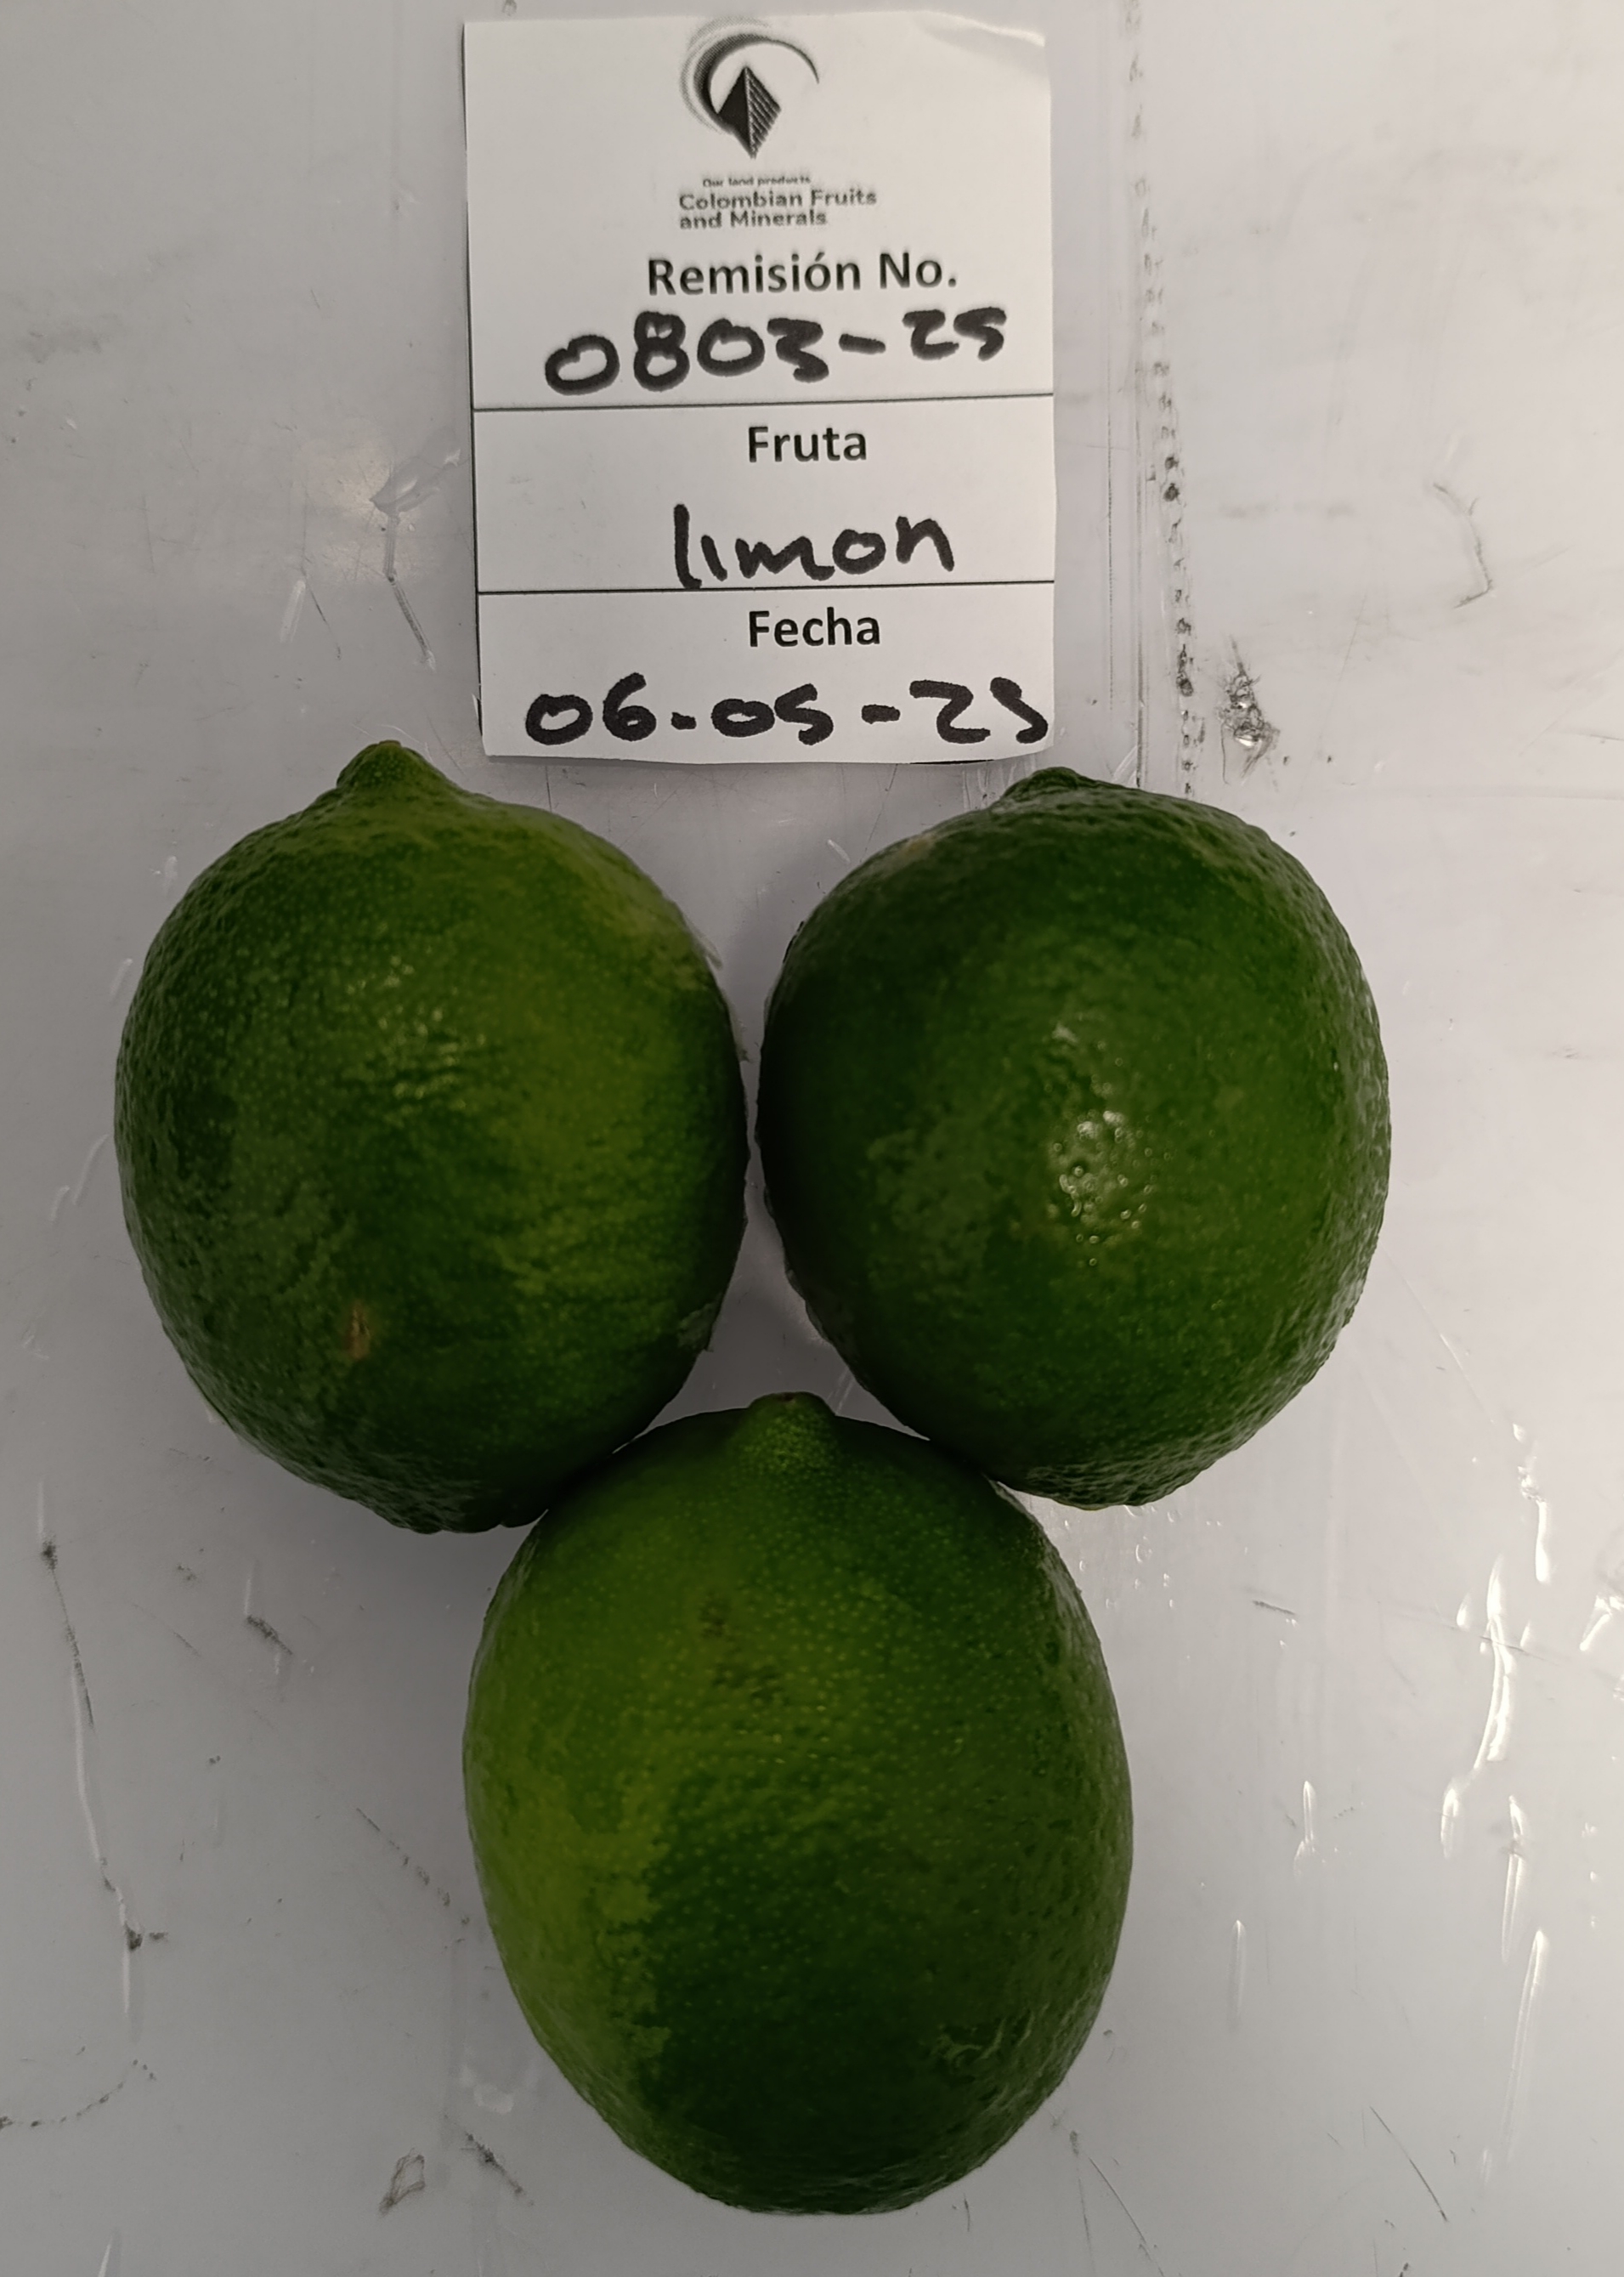 Our land products
Colombian Fruits
and Minerals
Remisión No.
0803-25
Fruta
limon
Fecha
06-05-25